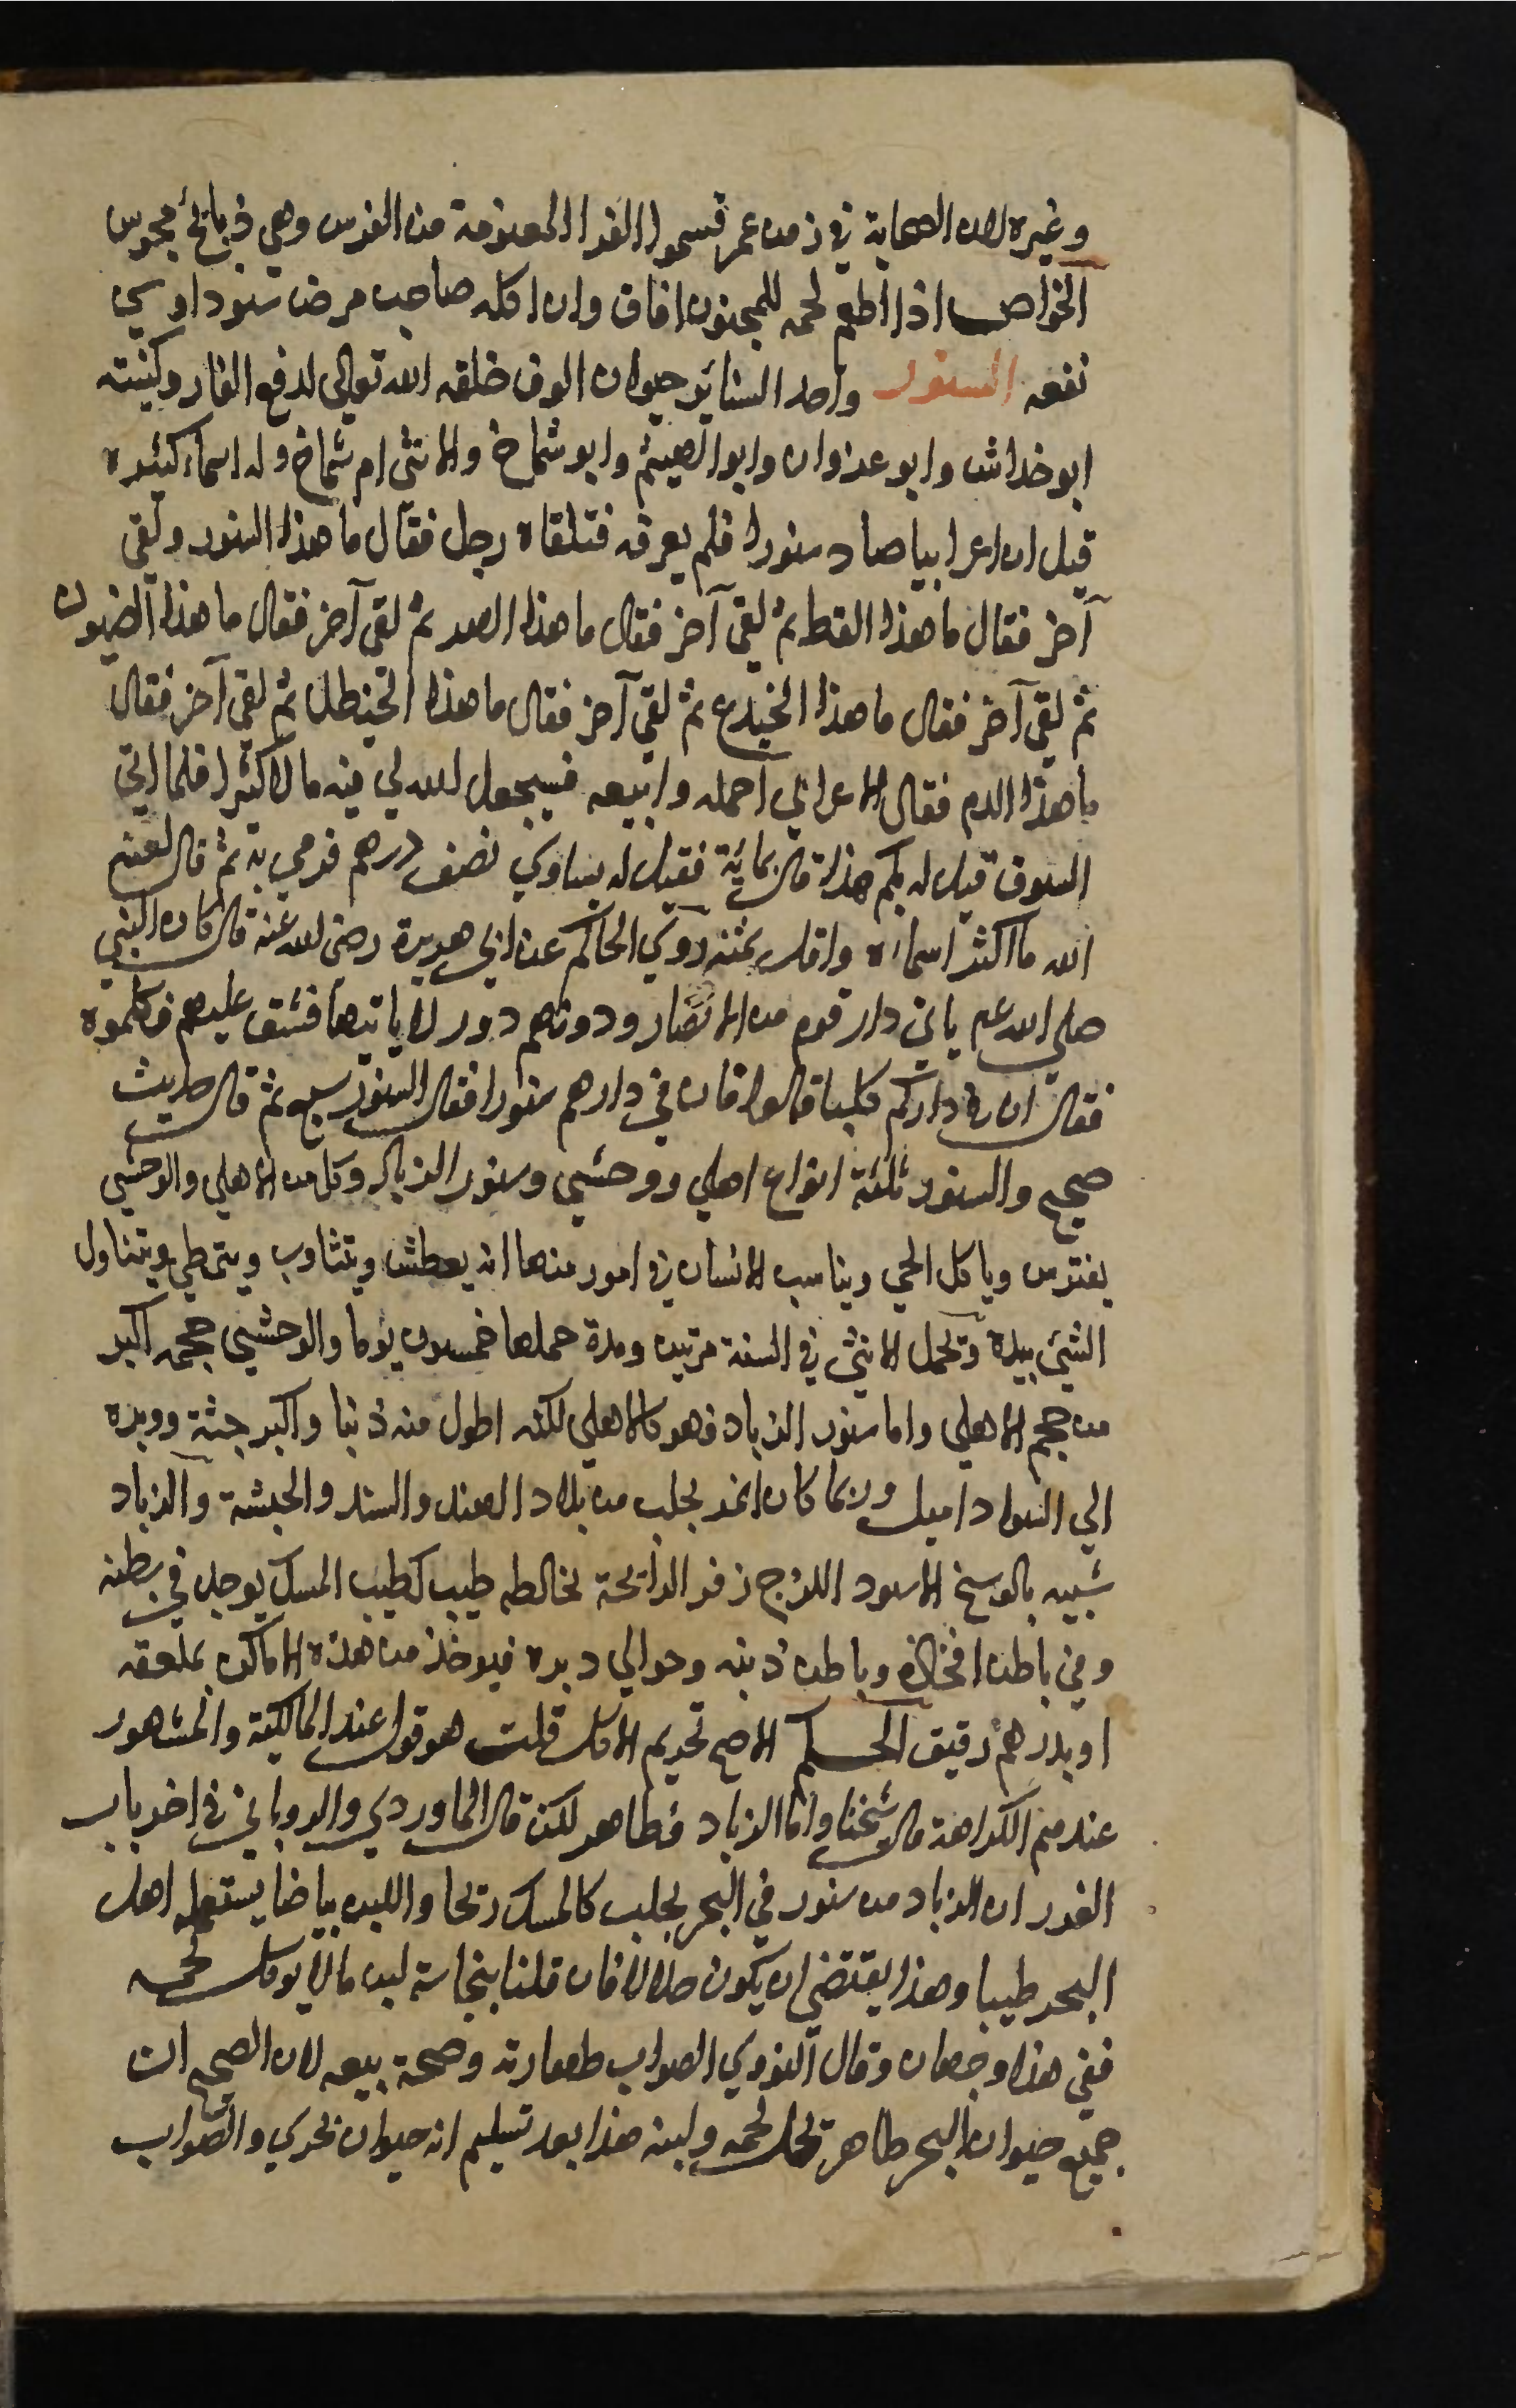 وغيره لان الصحابة في زمن عمر قسموا الفرا المغنومة من الفرس وهي ذبايح مجوس
الخواص اذا اطعم لحمه للمجنون افاق وان اكله صاحب مرض سوداوي
نفعه السنور واحد السنانير حيوان الوف خلقه الله تعالى لدفع الفار وكنيته
ابو خداش وابو غزوان وابو الهيثم وابو شماخ والانثى ام شماخ وله اسماء كثيره
قيل ان اعرابيا صاد سنورا فلم يعرفه فتلقاه رجل فقال ما هذا السنور ولقي
آخر فقال ما هذا القط ثم لقي آخر فقال ما هذا الهر ثم لقي آخر فقال ما هذا الضيون
ثم لقي آخر فقال ما هذا الخيدع ثم لقي آخر فقال ما هذا الخيطل ثم لقي آخر فقال
ما هذا الدم فقال الاعرابي احمله وابيعه فسيجعل الله لي فيه مالا كثيرا فلما اتى
السوق قيل له بكم هذا قال بماية فقيل له يساوي نصف درهم فرمي به ثم قال لعنه
الله ما اكثر اسماءه واقل ثمنه روي الحاكم عن ابي هريرة رضى الله عنه قال كان النبي
صلي الله عم ياتي دار قوم من الانصار ودونهم دور لا ياتيها فشق عليهم فكلموه
فقال ان في داركم كلبا قالوا فان في دارهم سنورا فقال السنور سبع ثم قال حديث
صحيح والسنور ثلثة انواع اهلي ووحشي وسنور الزباد وكل من الاهلي والوحشي
يفترس وياكل الحي ويناسب الانسان في امور منها انه يعطش ويتثاوب ويتمطي ويتناول
الشئ بيده وتحمل الانثى في السنة مرتين ومدة حملها خمسون يوما والوحشي حجمه اكبر
من حجم الاهلي واما سنور الزباد فهو كالاهلي لكنه اطول منه ذنبا واكبر جثة ووبره
الي السواد اميل وربما كان انمر يجلب من بلاد الهند والسند والحبشة والزباد
شبيه بالوسخ الاسود اللزج زفر الرائحة يخالطه طيب كطيب المسك يوجد في بطنه
وفي باطن افخاذه وباطن ذنبه وحوالي دبره فيوخذ من هذه الاماكن بملعقه
او بدرهم رقيق الحكم الاصح تحريم الاكل قلت هو قول عند المالكية والمشهور
عندهم الكراهة قال شيخنا واما الزباد فطاهر لكن قال الماوردي والروياني في اخر باب
الغرر ان الزباد من سنور في البحر يجلب كالمسك ريحا واللبن بياضا يستعمله اهل
البحر طيبا وهذا يقتضي ان يكون حلالا فان قلنا بنجاسة لبن ما لا يوكل لحمه
ففي هذا وجهان وقال النووي الصواب طهارته وصحة بيعه لان الصحيح ان
جميع حيوان البحر طاهر يحل لحمه ولبنه هذا بعد تسليم انه حيوان بحري والصواب